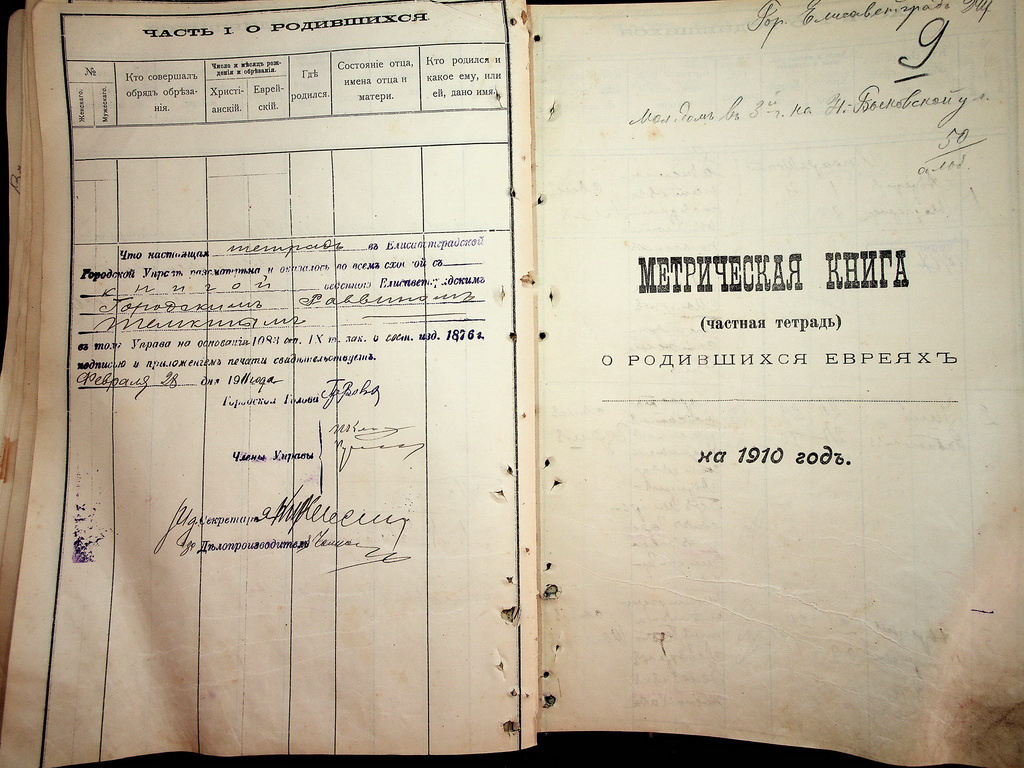 ЧАСТЬ I. О РОДИВШИХСЯ
№
Женскаго.
Мужескаго.
Кто совершалъ
обрядъ обрѣза-
нія.
Число и мѣсяцъ рож-
денія и обрѣзанія.
Христі-
анскій.
Еврей-
скій.
Гдѣ
родился.
Состояніе отца,
имена отца и
матери.
Кто родился и
какое ему, или
ей, дано имя.
Что настоящая тетрадь въ Елисаветградской
Городской Управѣ разсмотрѣна и оказалось во всемъ сходной съ
книгой веденною Елисаветградскимъ
Городскимъ Раввиномъ
Темкинымъ
въ томъ Управа на основаніи 1083 ст. IX т. зак. о сост. изд. 1876 г.
подписью и приложеніемъ печати свидѣтельствуетъ.
Февраля 28 дня 1911 года
Городской Голова
Члены Управы
Секретарь
Дѣлопроизводитель
Гор. Елисаветградъ
9
Мол. домъ въ 3й ч. на Н.-Быковской ул.
50
МЕТРИЧЕСКАЯ КНИГА
(частная тетрадь)
О РОДИВШИХСЯ ЕВРЕЯХЪ
на 1910 годъ.